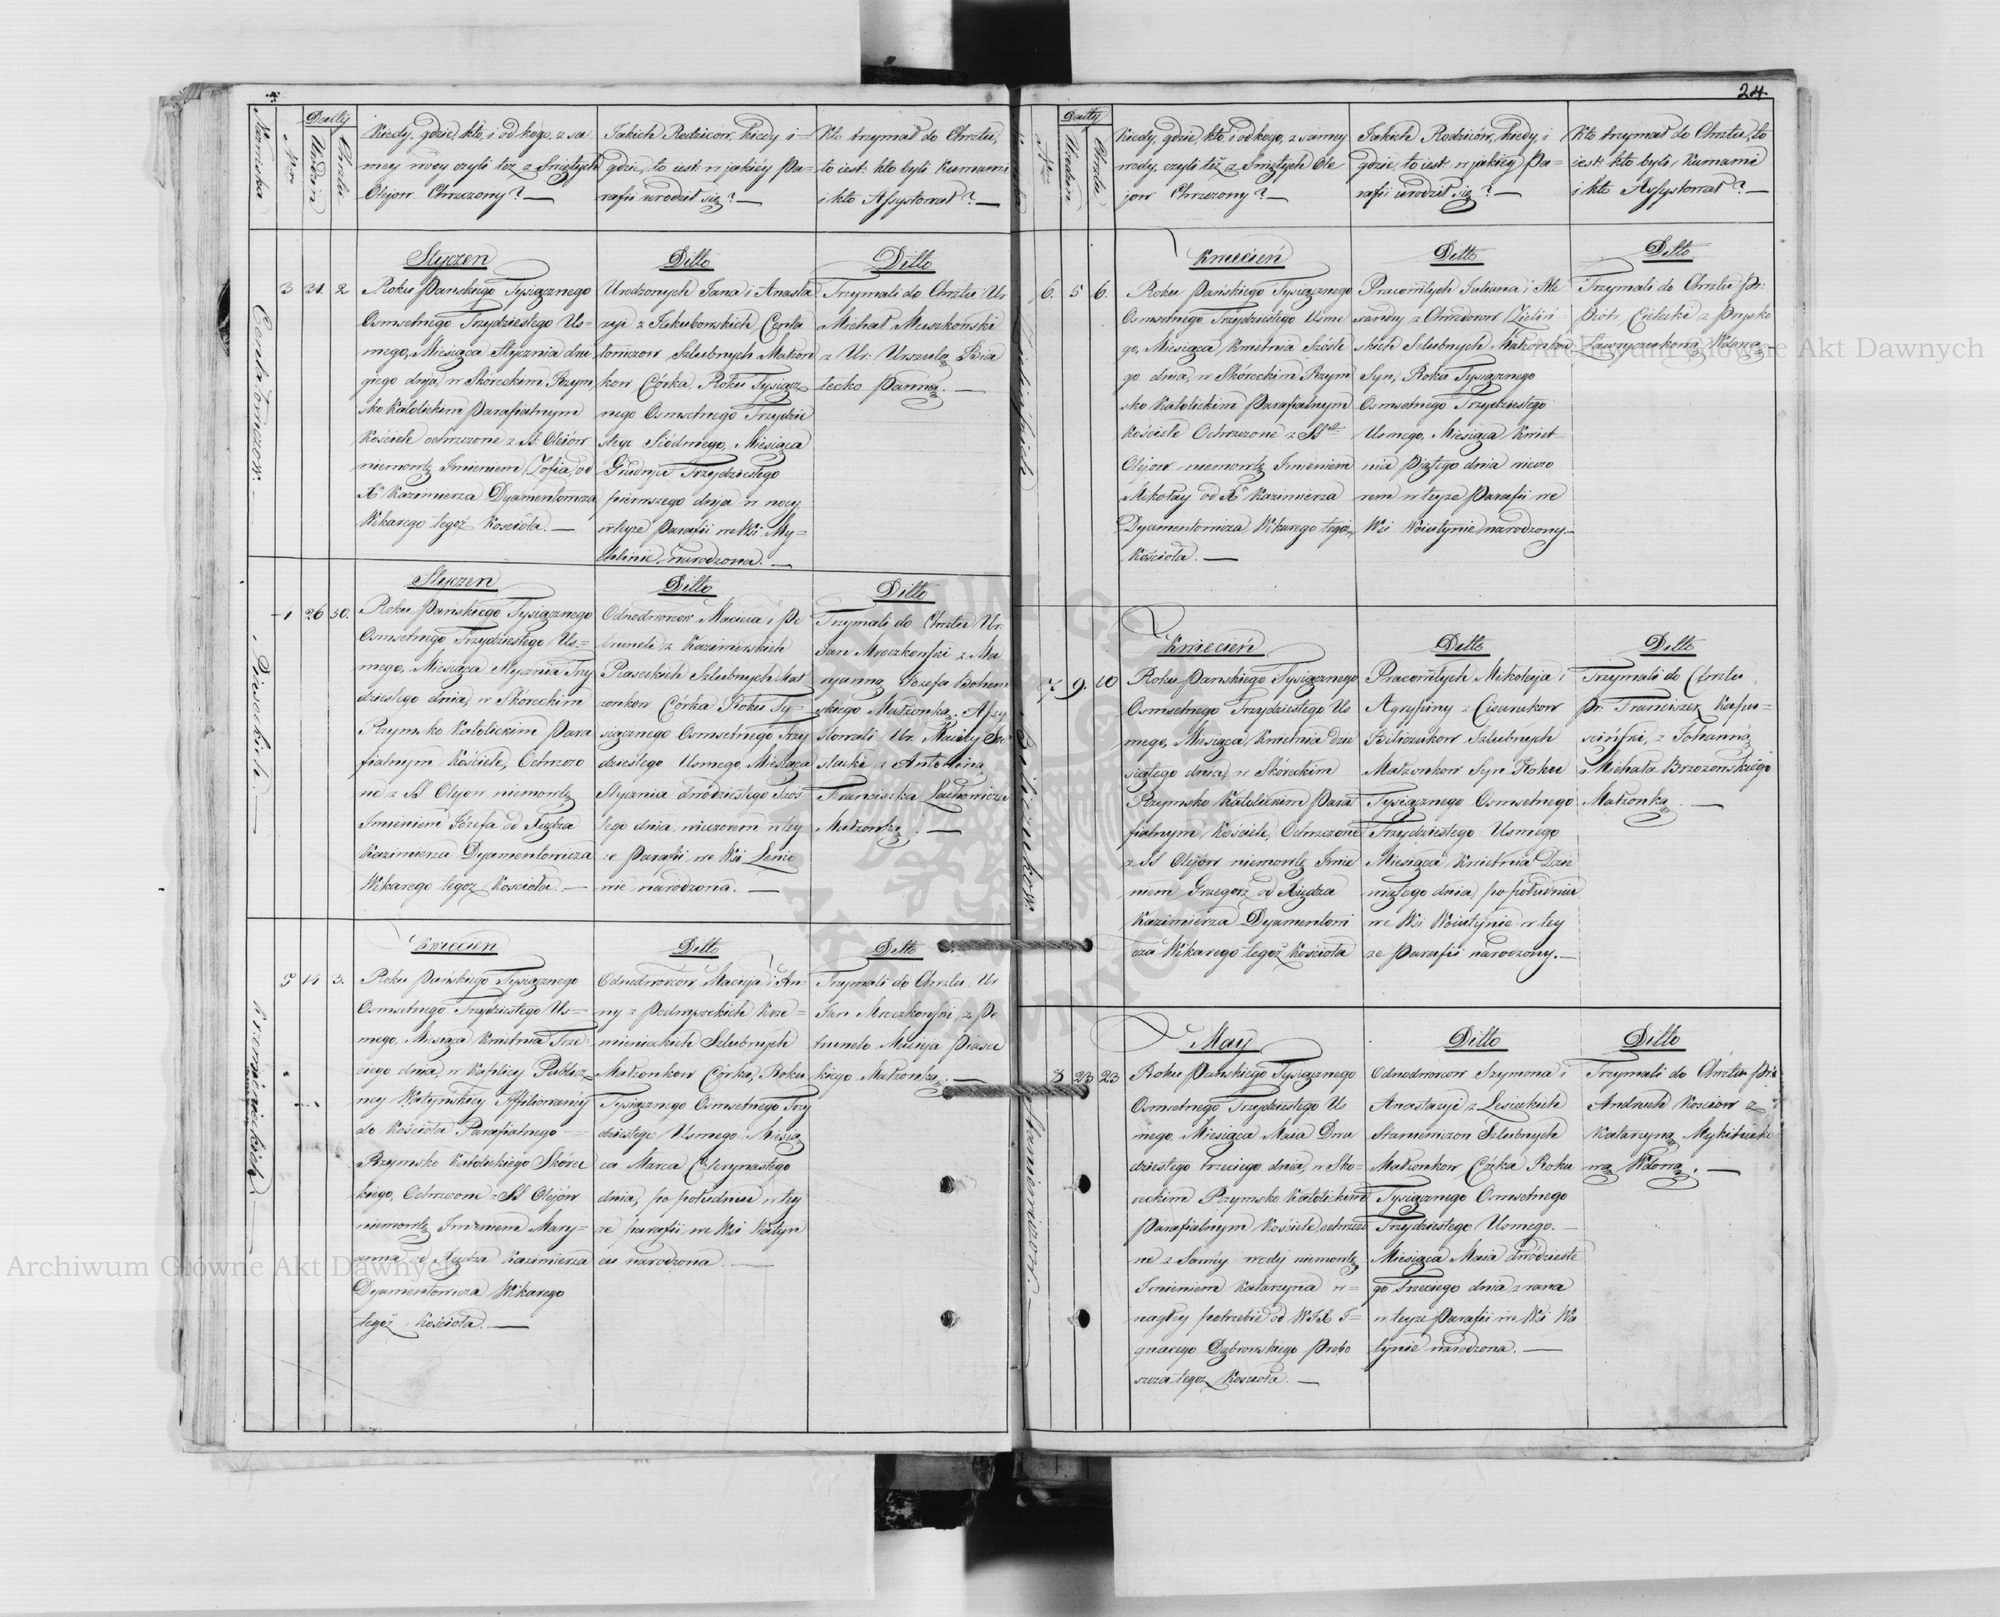 24
Nazwiska
Nro
Datty
Urodzin
Chrztu
Kiedy, gdzie, kto, i od kogo, z sa
mey wody czyli też z Swiętych
Olejow Chrzczony? —
Jakich Rodzicow, kiedy i
gdzie, to iest w jakiéy Pa=
rafii urodził się? —
Kto trzymał do Chrztu,
to iest: kto byli Kumami
i kto Assystował? —
Ceretatowiczow.
3
31.
2
Styczen
Roku Panskiego Tysiącznego
Osmsetnego Trzydziestego Us=
mego, Miesiąca Stycznia dru
giego dnia, w Skoreckim Rzym
sko Katolickim Parafialnym
Kościele ochrzczone z SS. Olejów
niemowlę Imieniem Zofia, od
X. Kazimierza Dyamentowicza
Wikarego tegoż Kościoła. —
Ditto
Urodzonych Jana i Anasta
zyi z Jakubowskich
Szlubnych Małżon
kow Córka. Roku Tysiącz
nego Osmsetnego Trzydzie
stego Siódmego, Miesiąca
Grudnia Trzydziestego
pierwszego dnia w nocy,
w teyze Parafii we Wsi My=
narodzona. —
Ditto
Trzymali do Chrztu Ur.
Michał Muszkoński
z Ur. Urszulą Bia
łecko Panną. —
Piaseckich.
26
30.
Styczen
Roku Panskiego Tysiącznego
Osmsetnego Trzydziestego Us=
mego, Miesiąca Stycznia Trzy
dziestego dnia, w Skoreckim
Rzymsko Katolickim Para
fialnym Kościele, Ochrzczo
ne z SS Olejow niemowlę
Imieniem Józefa od Xiędza
Kazimierza Dyamentowicza
Wikarego tegoz Kosciola. —
Ditto
Odnodworcow Macieia i Pe
truneli z Kazimirskich
Piaseckich Szlubnych Mał
zonkow Córka Roku Ty=
siącznego Osmsetnego Trzy
dziestego Usmego, Miesiąca
Stycznia dwódziestego Szós
tego dnia, wieczorem w tey
ze Parafii, we Wsi Leni
nie narodzona. —
Ditto
Trzymali do Chrztu Ur.
Jan Mroczkowski z Ma
ryanną Jozefa Bohem
skiego Małżonką. Assy
stowali Ur. Maciey
z Antoniną
Franciszka Lachowicza
Małżonką. —
Krzemienieckich.
5
14
3.
Kwiecien
Roku Pańskiego Tysiącznego
Osmsetnego Trzydziestego Us=
mego, Miesiąca Kwietnia Trze=
ciego dnia, w Kaplicy Publicz
ney Wołynskiey Affiliowanéy
do Kościoła Parafialnego
Rzymsko Katolickiego Skórec
kiego, Ochrzczone z SS Olejów
niemowlę Imieniem Mary=
anna od Xiędza Kazimierza
Dyamentowicza Wikarego
tegoż Kościoła. —
Ditto
Odnodworcow Macieja i An=
ny z Podwysockich Krze=
mienieckich Szlubnych
Małżonkow Córka, Roku
Tysiącznego Osmsetnego Trzy
dziestego Usmego Miesią
ca Marca Czterynastego
dnia, po południu w tey
ze parafii, we Wsi
narodzona. —
Ditto
Trzymali do Chrztu Ur
Jan Mroczkowski, z Pe
trunelo Macieja Piasec
kiego Małżonką. —
Nro
Datty
Urodzin
Chrztu
Kiedy, gdzie, kto, i od kogo, z samey
wody, czyli też z Swiętych Ole
jow Chrzczony? —
Jakich Rodziców, kiedy, i
gdzie, to iest w jakiéy Pa=
rafii urodził się? —
Kto trzymał do Chrztu, to
iest: kto byli Kumami
i kto Assystował? —
6.
5
6.
Kwiecień
Roku Pańskiego Tysiącznego
Osmsetnego Trzydziestego Usme
go, Miesiąca Kwietnia Szóste
go dnia, w Skóreckim Rzym
sko Katolickim Parafialnym
Kościele Ochrzczone z SS
Olejow niemowlę Imieniem
Mikołay od X. Kazimierza
Dyamentowicza Wikarego tegoż
Kościoła. —
Ditto
Pracowitych Juliana i Ale
xandry z
Szlubnych Małżonków
Syn, Roku Tysiącznego
Osmsetnego Trzydziestego
Usmego, Miesiąca Kwiet=
nia Piątego dnia wieczo
rem w teyze Parafii we
Wsi Woiutynie narodzony. —
Ditto
Trzymali do Chrztu Pr:
Piotr Cielecki z Prysko
Ławryczukową Wdową
Biliczukow
7.
9.
10
Kwiecień
Roku Panskiego Tysiącznego
Osmsetnego Trzydziestego Us
mego, Miesiąca Kwietnia Dzie
siątego dnia w Skóreckim
Rzymsko Katolickim Para
fialnym Kościele, Ochrzczone
z SS Olejów niemowlę Imie
niem Grzegorz od Xiędza
Kazimierza Dyamentowi
cza Wikarego tegoż Kościoła
Ditto
Pracowitych Mikołaja i
Agryfiny z Cisarukow
Biliczukow Szlubnych
Małżonkow Syn Roku
Tysiącznego Osmsetnego
Trzydziestego Usmego
Miesiąca Kwietnia Dzie
wiątego dnia, po południu
we Wsi Woiutynie w tey
ze Parafii narodzony. —
Ditto
Trzymali do Chrztu
Pr. Franciszek Kapu=
ściński, z Johanną
Michała Brzozowskiego
Małżonką. —
Stamiewiczow.
8
23
23
May
Roku Pańskiego Tysiącznego
Osmsetnego Trzydziestego Us
mego, Miesiąca Maia Dwu
dziestego trzeciego dnia, w Sko=
reckim Rzymsko Katolickim
Parafialnym Kościele, ochrzczo
ne z Saméy wody niemowlę
Imieniem Katarzyna w=
nagłey potrzebie od WJX I=
gnacego Dąbrowskiego Probo
szcza tegoz Kosciola. —
Ditto
Odnodworcow Szymona i
Anastazyi z Lesieckich
Szlubnych
Małżonkow Córka Roku
Tysiącznego Osmsetnego
Trzydziestego Usmego. —
Miesiąca Maia dwódzieste
go trzeciego dnia z rana
w teyze Parafii we Wsi Wo
łynie narodzona. —
Ditto
Trzymali do Chrztu Pr:
Andrzéh Kosciow z
Katarzyną Mykituko
wą Wdową. —
Archiwum Główne Akt Dawnych
Archiwum Główne Akt Dawnych